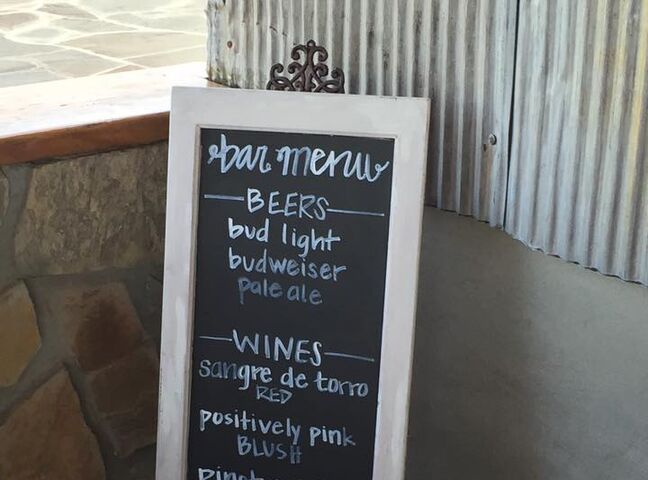 bar menu
BEERS
bud light
budweiser
pale ale
WINES
sangre de torro
RED
positively pink
BLUSH